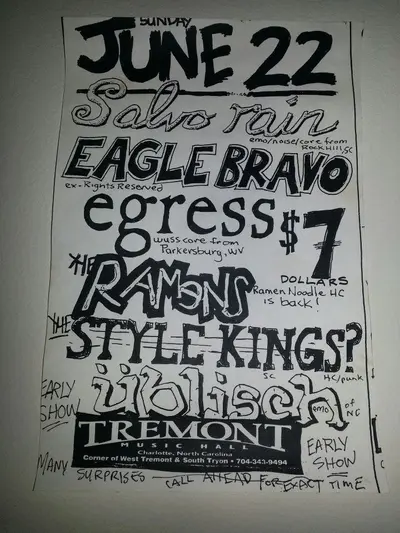 SUNDAY
JUNE 22
Salvo rain
emo/noise/core from
Rock Hill, SC
EAGLE BRAVO
ex-Rights Reserved
egress
wusscore from
Parkersburg, WV
$7
DOLLARS
THE RAMENS
Ramen Noodle HC
is back!
THE STYLE KINGS?
SC
HC/punk
EARLY
SHOW
üblisch
emo of
NC
TREMONT
MUSIC HALL
Charlotte, North Carolina
Corner of West Tremont & South Tryon • 704-343-9494
EARLY
SHOW
MANY SURPRISES — CALL AHEAD FOR EXACT TIME